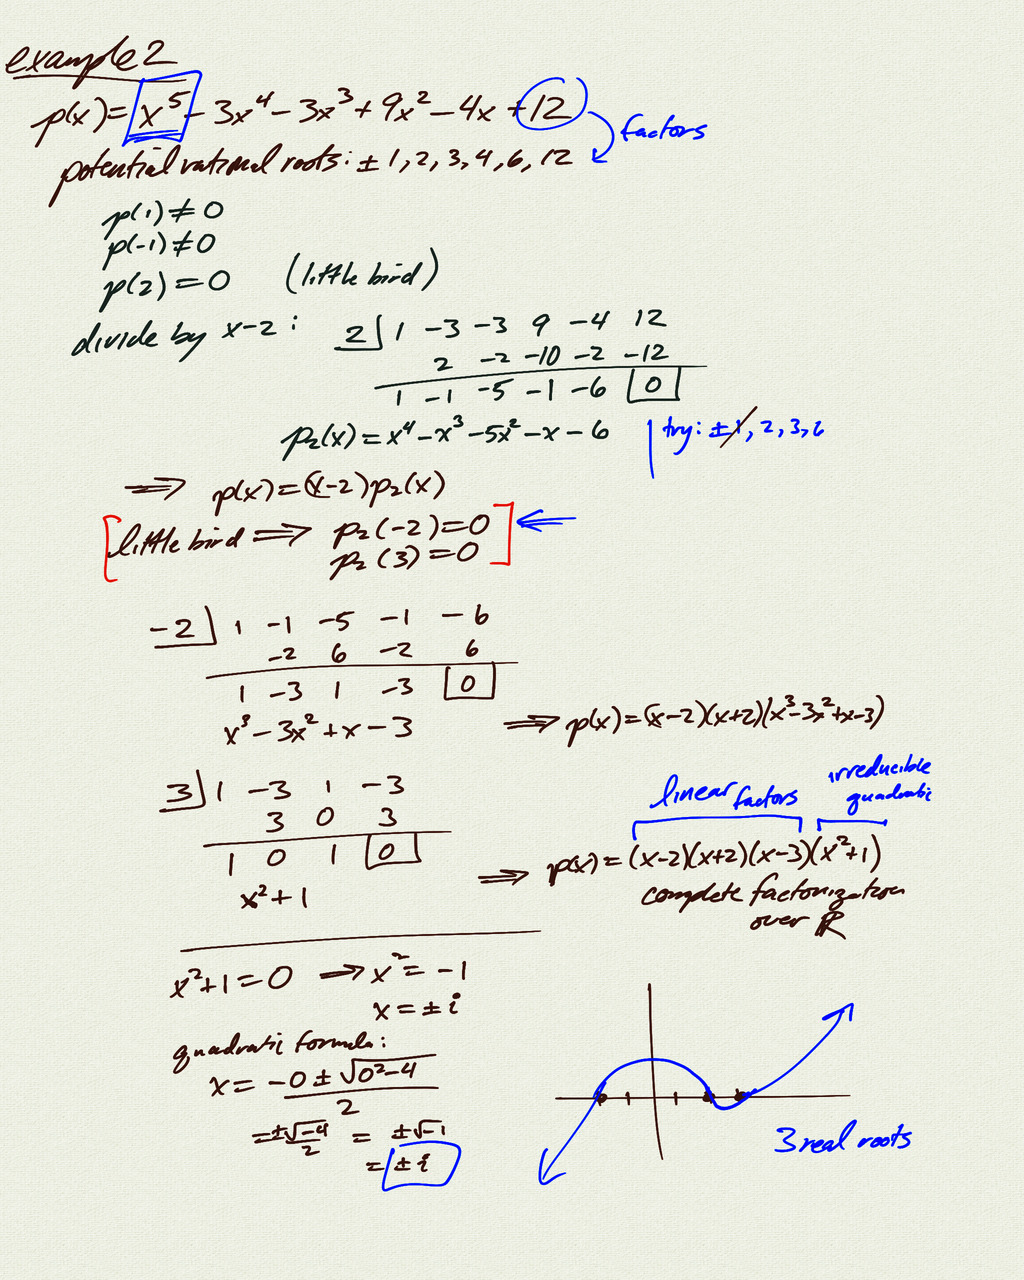 example 2
p(x) = x⁵ - 3x⁴ - 3x³ + 9x² - 4x + 12
factors
potential rational roots: ± 1, 2, 3, 4, 6, 12
p(1) ≠ 0
p(-1) ≠ 0
p(2) = 0 (little bird)
divide by x-2 : 2 | 1 -3 -3 9 -4 12
2 -2 -10 -2 -12
1 -1 -5 -1 -6 0
p₂(x) = x⁴ - x³ - 5x² - x - 6
try: ± 1, 2, 3, 6
⟹ p(x) = (x-2) p₂(x)
[little bird ⟹ p₂(-2) = 0
p₂(3) = 0] ⇐
-2 | 1 -1 -5 -1 -6
-2 6 -2 6
1 -3 1 -3 0
x³ - 3x² + x - 3 ⟹ p(x) = (x-2)(x+2)(x³-3x²+x-3)
3 | 1 -3 1 -3
3 0 3
1 0 1 0
x² + 1
linear factors
irreducible
quadratic
⟹ p(x) = (x-2)(x+2)(x-3)(x²+1)
complete factorization
over ℝ
x²+1 = 0 ⟹ x² = -1
x = ± i
quadratic formula:
x = -0 ± √0²-4
2
= ±√-4 = ±√-1
2
= ± i
3 real roots